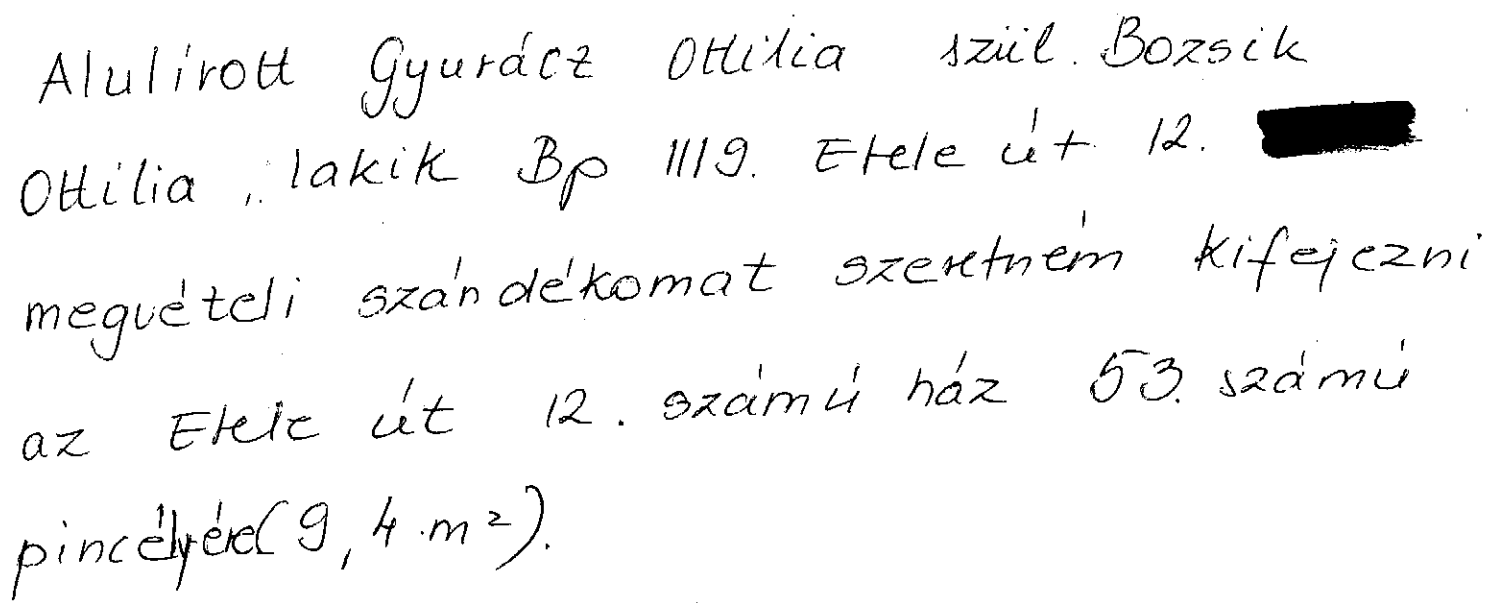 Alulírott Gyurácz Ottilia szül. Bozsik
Ottilia, lakik Bp 1119. Etele út 12.
megvételi szándékomat szeretném kifejezni
az Etele út 12. számú ház 53. számú
pincélyére (9,4 m²).